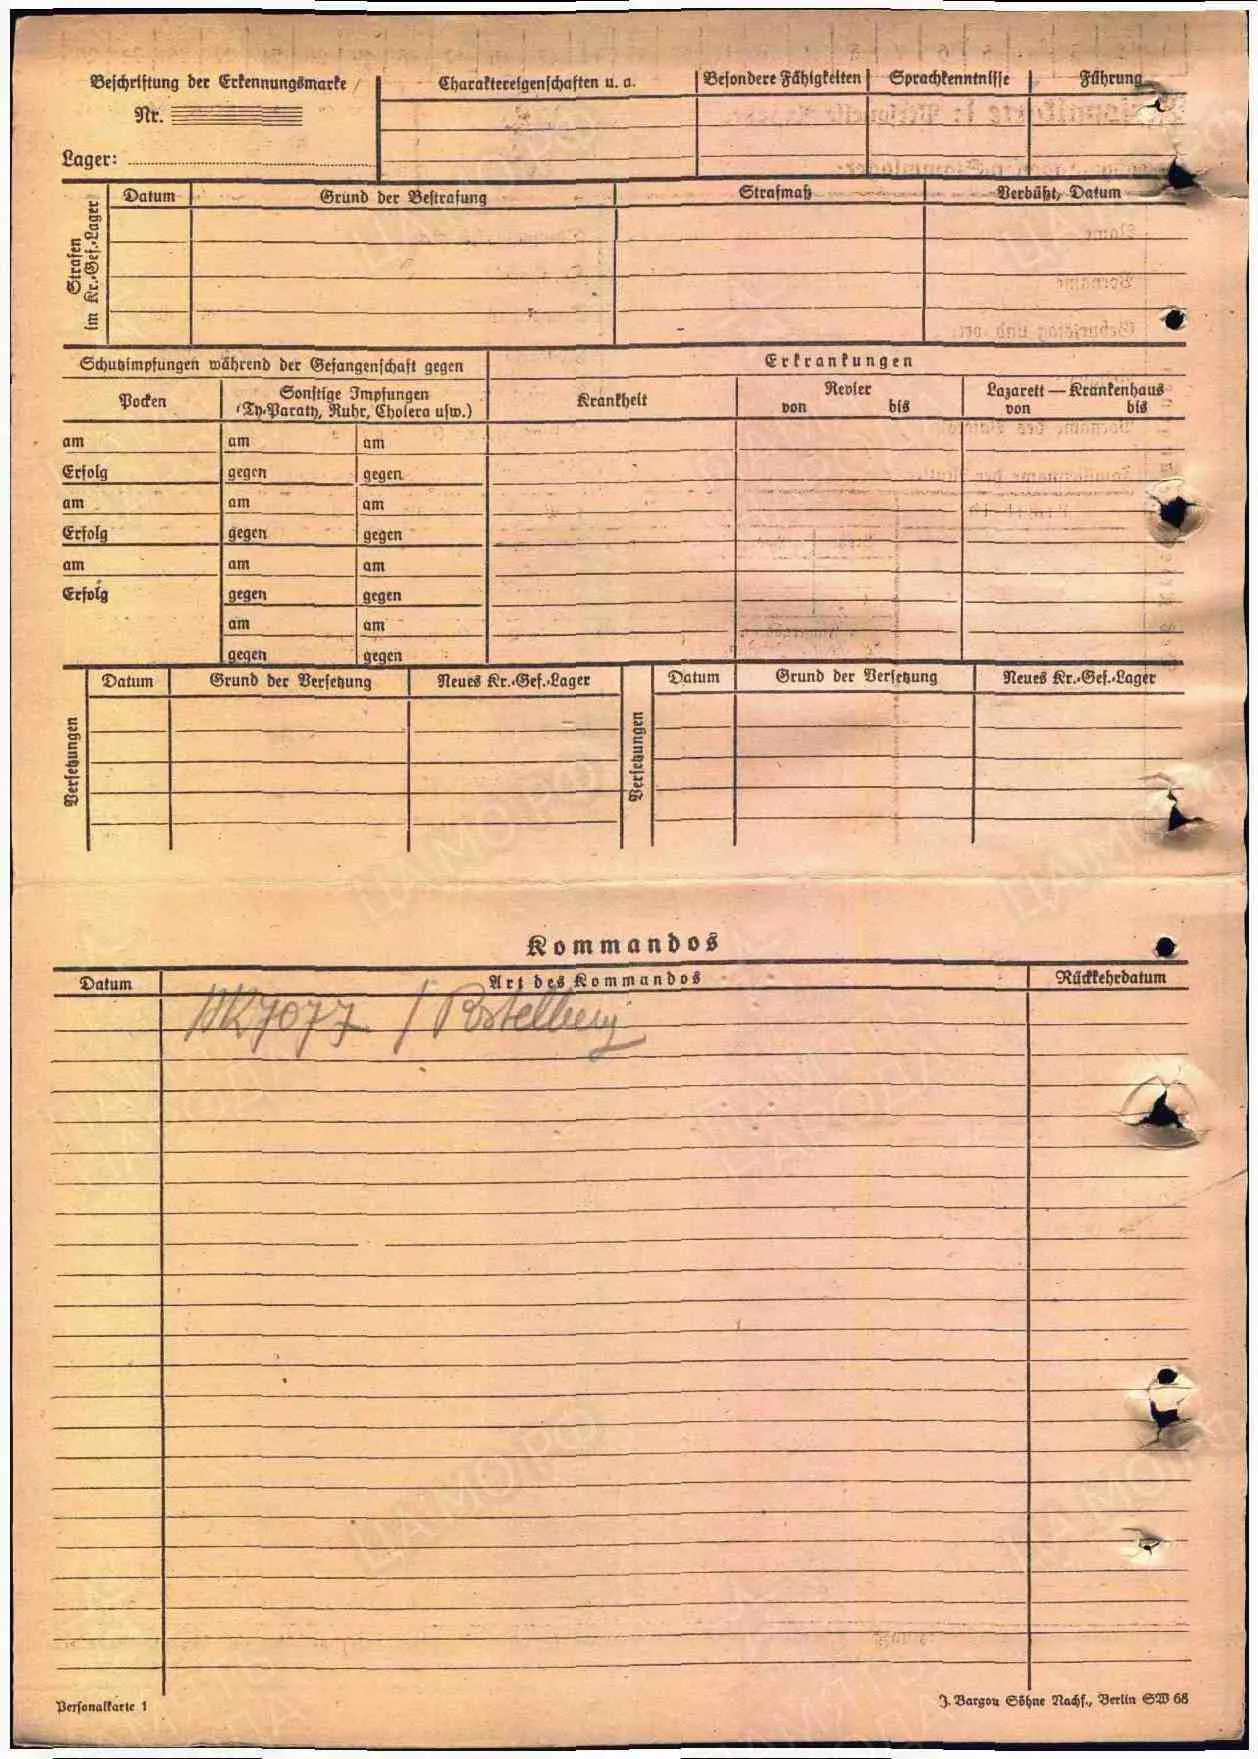 Beschriftung der Erkennungsmarke
Nr.
Lager:
Charaktereigenschaften u. a.
Besondere Fähigkeiten
Sprachkenntnisse
Führung
Strafen
im Kr.-Gef.-Lager
Datum
Grund der Bestrafung
Strafmaß
Verbüßt, Datum
Schutzimpfungen während der Gefangenschaft gegen
Erkrankungen
Pocken
Sonstige Impfungen
(Ty.-Paraty, Ruhr, Cholera usw.)
Krankheit
Revier
von bis
Lazarett — Krankenhaus
von bis
am am am
Erfolg gegen gegen
am am am
Erfolg gegen gegen
am am am
Erfolg gegen gegen
am am
gegen gegen
Versetzungen
Datum
Grund der Versetzung
Neues Kr.-Gef.-Lager
Versetzungen
Datum
Grund der Versetzung
Neues Kr.-Gef.-Lager
Kommandos
Datum
Art des Kommandos
Rückkehrdatum
7077 / Postelberg
Personalkarte 1
J. Bargou Söhne Nachf., Berlin SW 68